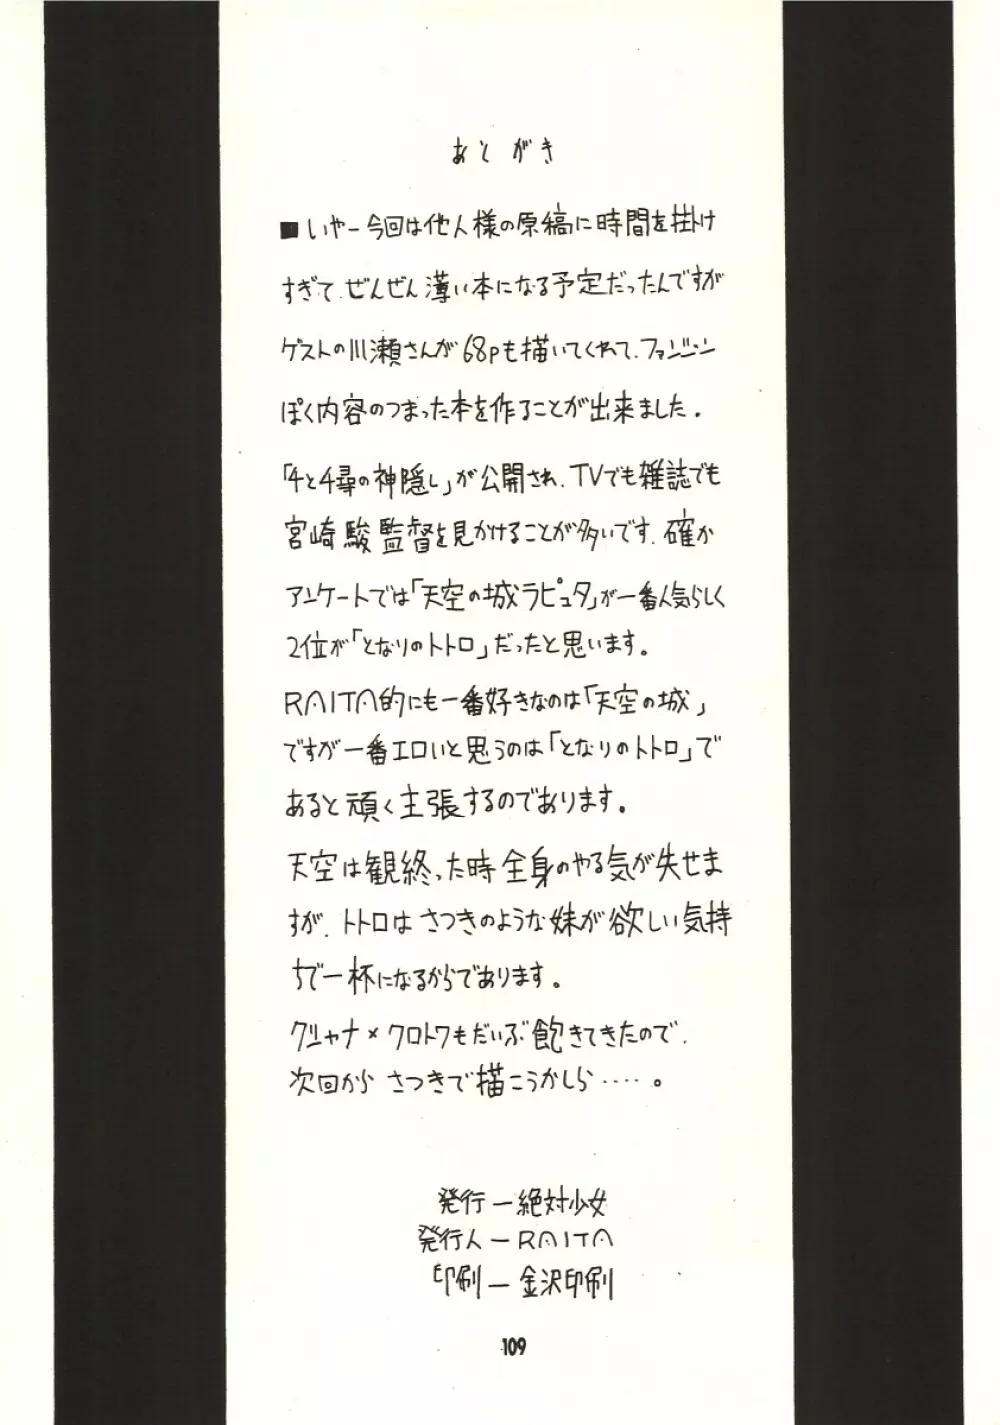 あとがき
■いやー今回は他人様の原稿に時間を掛け
すぎて、ぜんぜん薄い本になる予定だったんですが
ゲストの川瀬さんが68pも描いてくれて、ファンジン
ぽく内容のつまった本を作ることが出来ました。
「千と千尋の神隠し」が公開され、TVでも雑誌でも
宮崎駿監督を見かけることが多いです。確か
アンケートでは「天空の城ラピュタ」が一番人気らしく
2位が「となりのトトロ」だったと思います。
RAITA的にも一番好きなのは「天空の城」
ですが一番エロいと思うのは「となりのトトロ」で
あると頑く主張するのであります。
天空は観終った時全身のやる気が失せま
すが、トトロはさつきのような妹が欲しい気持
ちで一杯になるからであります。
クシャナ×クロトワもだいぶ飽きてきたので、
次回から さつきで描こうかしら……。
発行ー絶対少女
発行人ーRAITA
印刷ー金沢印刷
109